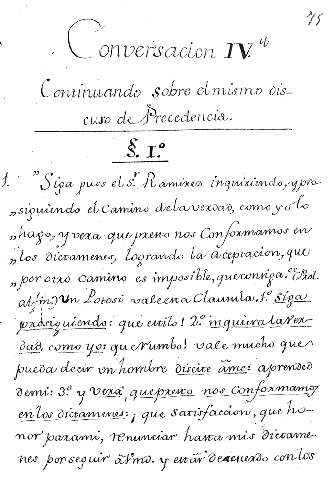 75
Conversacion IV.ª
Continuando sobre el mismo dis-
curso de Precedencia.
§. I.º
1. "Siga pues el S.r Ramirez inquiriendo, y pro-
"siguiendo el Camino dela verdad, como yo lo
"hago, y verà que presto nos Conformamos en
"los dictamenes, logrando la aceptacion, que
por otro camino es imposible, que consiga.
al fin) Un Potosi vale esta Clausula. 1.º Siga
prosiguiendo: que estilo! 2.º inquiera la ver-
dad, como yo: que rumbo! vale mucho que
pueda decir un hombre discite à me: aprended
de mi: 3.º y verà, que presto nos Conformamos
en los dictamenes: ¡ que satisfaccion, que ho-
nor para mi, renunciar hasta mis dictame-
nes por seguir à Vmd. y estàr de acuerdo con los